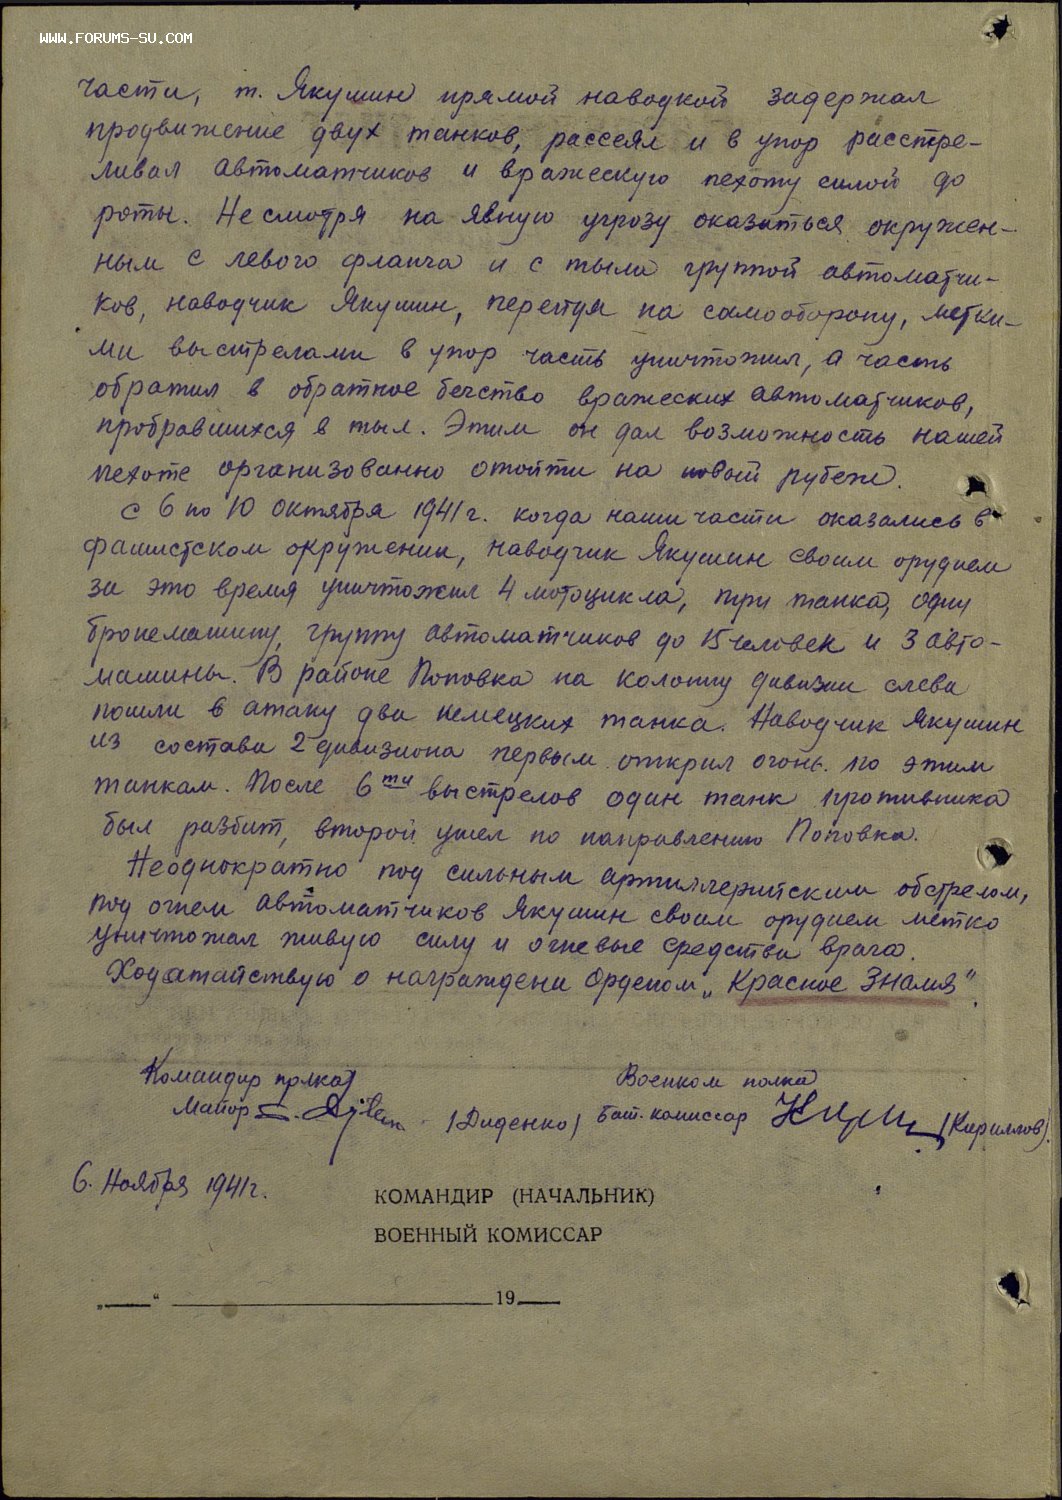 WWW.FORUMS-SU.COM
части, т. Якушин прямой наводкой задержал
продвижение двух танков, рассеял и в упор расстре-
ливал автоматчиков и вражескую пехоту силой до
роты. Несмотря на явную угрозу оказаться окружен-
ным с левого фланга и с тыла группой автоматчи-
ков, наводчик Якушин, перейдя на самооборону, метки-
ми выстрелами в упор часть уничтожил, а часть
обратил в обратное бегство вражеских автоматчиков,
пробравшихся в тыл. Этим он дал возможность нашей
пехоте организованно отойти на новый рубеж.
С 6 по 10 Октября 1941 г. когда наши части оказались в
фашистском окружении, наводчик Якушин своим орудием
за это время уничтожил 4 мотоцикла, три танка, одну
бронемашину, группу автоматчиков до 15 человек и 3 авто-
машины. В районе Поповка на колонну дивизии слева
пошли в атаку два немецких танка. Наводчик Якушин
из состава 2 дивизиона первым открыл огонь по этим
танкам. После 6ти выстрелов один танк противника
был разбит, второй ушел по направлению Поповка.
Неоднократно под сильным артиллеритским обстрелом,
под огнем автоматчиков Якушин своим орудием метко
уничтожал живую силу и огневые средства врага.
Ходатайствую о награждени Орденом „Красное Знамя".
Командир полка
Военком полка
Майор (Диденко)
бат. комиссар (Кириллов).
6. Ноября 1941 г.
КОМАНДИР (НАЧАЛЬНИК)
ВОЕННЫЙ КОМИССАР
„____“ ____________________19____